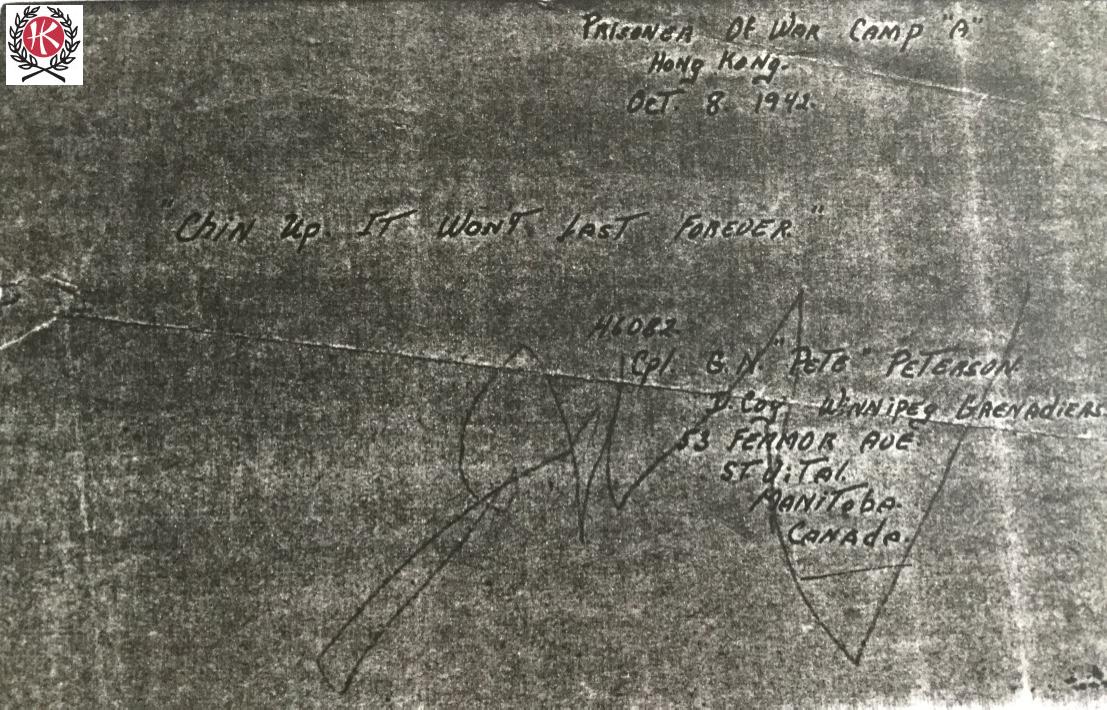 HK
PRISONER OF WAR CAMP "A"
Hong Kong.
OCT. 8 1942.
"Chin Up. IT WON'T LAST FOREVER"
H6082
Cpl. G.N. "PETE" PETERSON
D. Coy. WINNIPEG GRENADIERS
53 FERMOR AVE
ST ViTAl.
MANiTobA.
CANAdA.